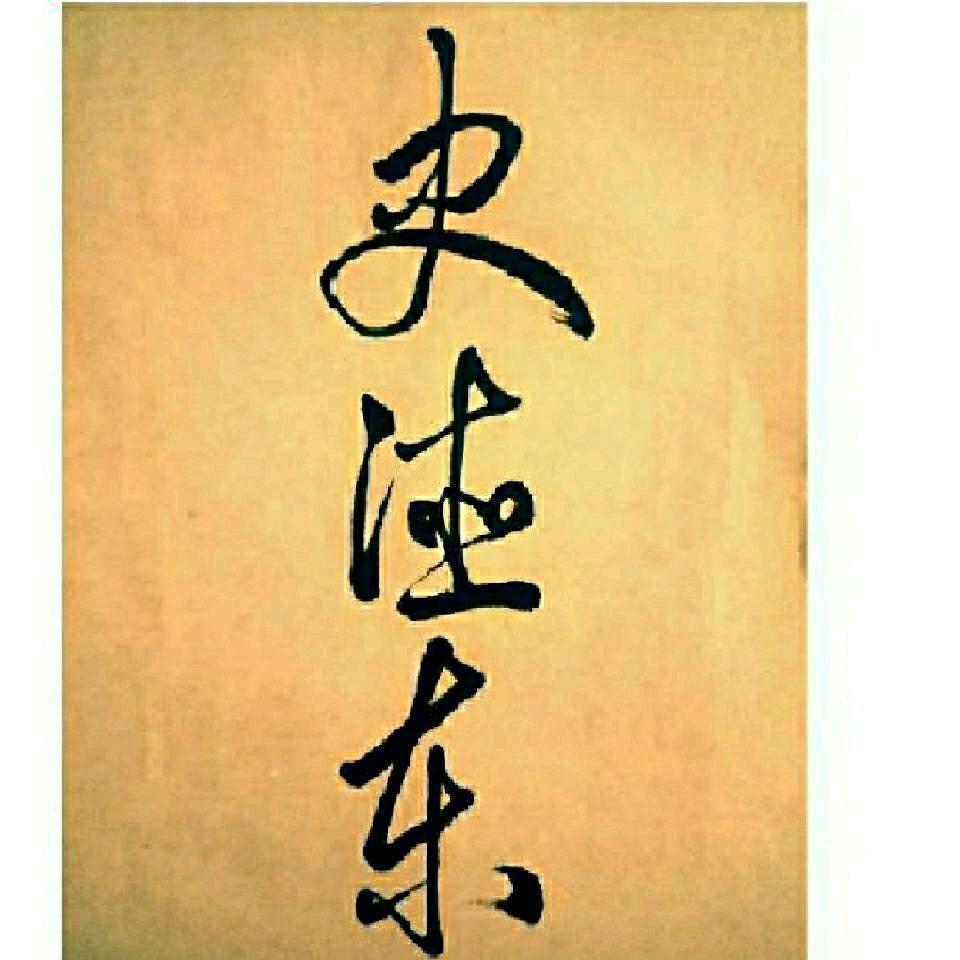 史德东